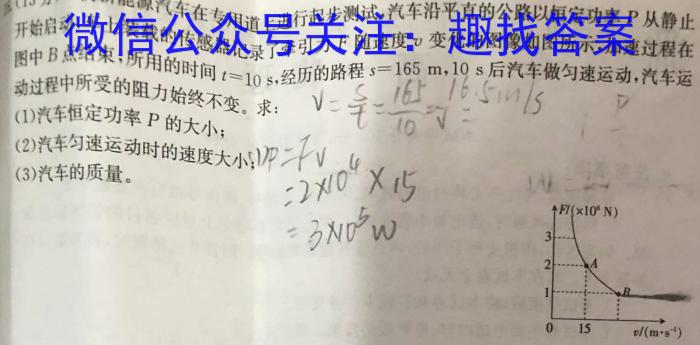 能源汽车在专用道上进行起步测试,汽车沿平直的公路以恒定功率 P 从静止
微信公众号关注：趣找答案
开始启
传感
记录了牵引
随速度 v 变
图像如图所示
速过程在
图中 B 点结束,所用的时间 t=10 s,经历的路程 s=165 m,10 s 后汽车做匀速运动,汽车运
动过程中所受的阻力始终不变。求:
V=S/t=165/10=16.5m/s
(1)汽车恒定功率 P 的大小;
(2)汽车匀速运动时的速度大小;
(3)汽车的质量。
P=Fv
=2×10⁴×15
=3×10⁵W
F/(×10⁴ N)
3
2
A
1
B
0
15
v/(m·s⁻¹)